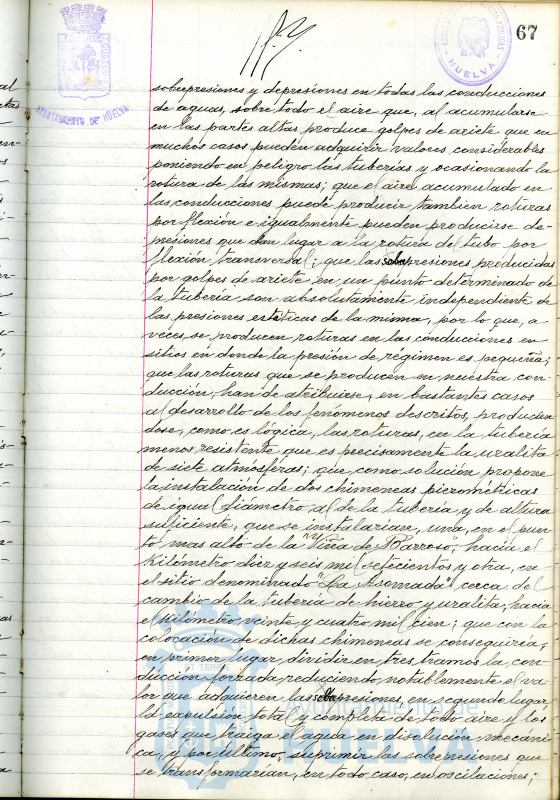 67
AYUNTAMIENTO DE HUELVA
HUELVA
sobrepresiones y depresiones en todas las conducciones
de aguas, sobre todo el aire que, al acumularse
en las partes altas produce golpes de ariete que en
muchos casos pueden adquirir valores considerables
poniendo en peligro las tuberías y ocasionando la
rotura de las mismas; que el aire acumulado en
las conducciones puede producir tambien roturas
por flexión e igualmente pueden producirse de-
presiones que dan lugar a la rotura del tubo por
flexión transversal; que las sobrepresiones producidas
por golpes de ariete en un punto determinado de
la tubería son absolutamente independiente de
las presiones estáticas de la misma, por lo que, a
veces, se producen roturas en las conducciones en
sitios en donde la presión de régimen es pequeña;
que las roturas que se producen en nuestra con-
ducción, han de atribuirse, en bastantes casos
al desarrollo de los fenomenos descritos, producien
dose, como es lógica, las roturas, en la tubería
menos resistente que es precisamente la uralita
de siete atmósferas; que como solución propone
la instalación de dos chimeneas piezométricas
de igual diámetro al de la tubería y de altura
suficiente, que se instalarian, una, en el pun-
to mas alto de la "Viña de Barroso", hacia el
Kilómetro diez y seis mil setecientos y otra, en
el sitio denominado "La Asomada" cerca del
cambio de la tuberia de hierro y uralita, hacia
el Kilómetro veinte y cuatro mil cien; que con la
colocación de dichas chimeneas se conseguiría,
en primer lugar, dividir en tres tramos la con-
ducción forzada, reduciendo notablemente el va-
lor que adquieren las sobrepresiones, en segundo lugar,
la expulsión total y completa de todo aire y los
gases que traiga el agua en disolución mecáni-
ca, y por último, suprimir las sobrepresiones que
se transformarían, en todo caso, en oscilaciones;
Ayuntamiento de
HUELVA